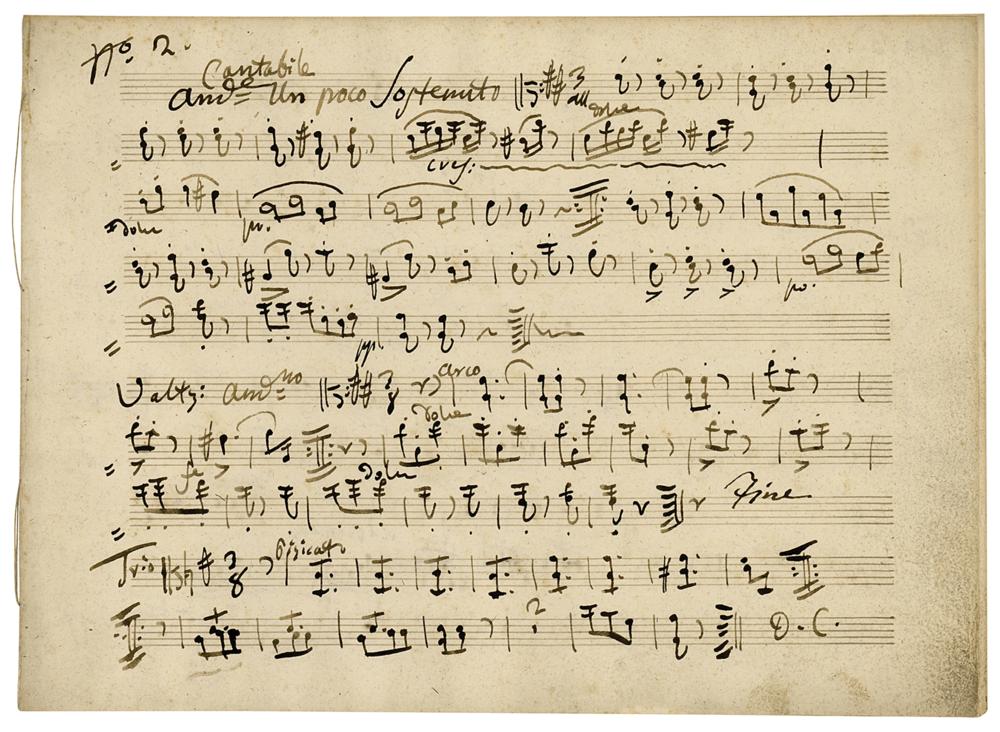 No. 2.
Cantabile
And.e Un poco Sostenuto 3
dolce
cres:
dolce po.
po.
ppo
Valtz: And.no 3 8 arco
dolce
fe dolce
Fine
Trio 3 8 Pizicatto
2 D. C.